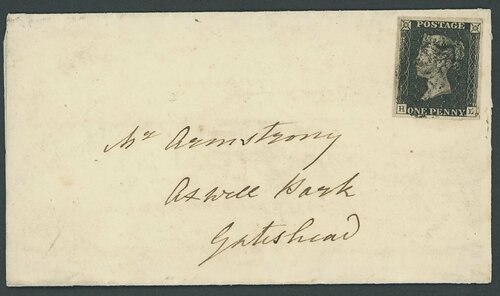 POSTAGE
H ONE PENNY L
Mr Armstrong
Axwell Park
Gateshead